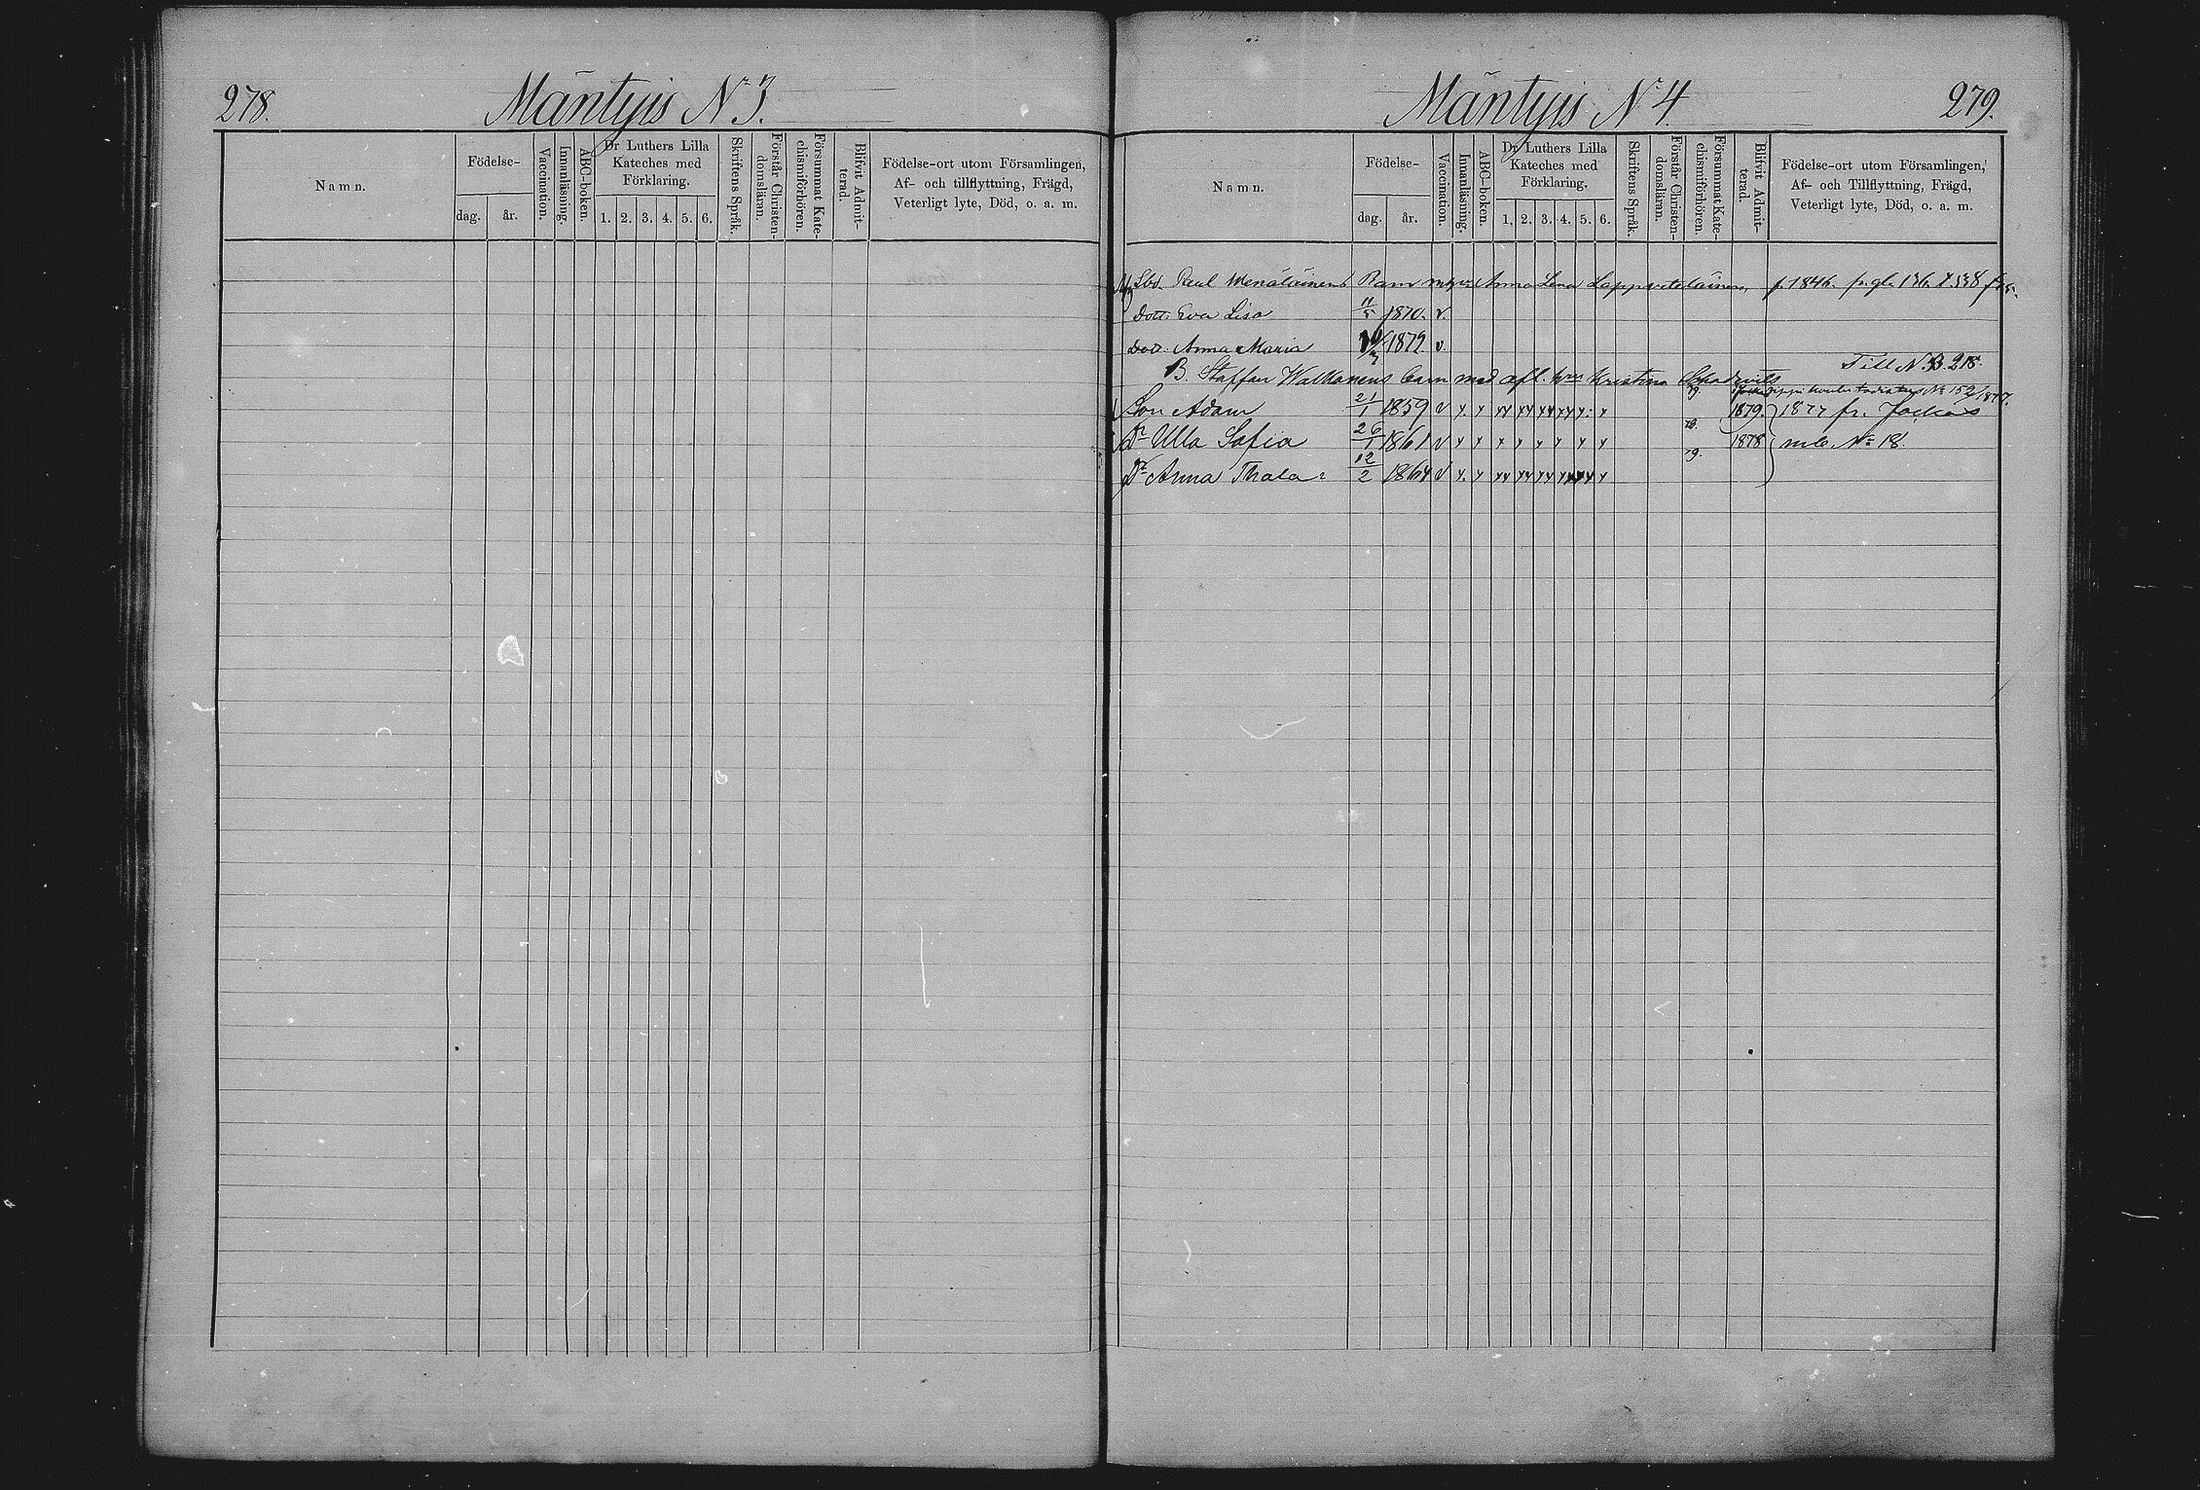 278.
Mäntyis No 3.
Namn.
Födelse-
dag.
år.
Vaccination.
Innanläsning.
ABC-boken.
Dr Luthers Lilla
Kateches med
Förklaring.
1. 2. 3. 4. 5. 6.
Skriftens Språk.
Förstår Christen-
domsläran.
Försummat Kate-
chismiförhören.
Blifvit Admit-
terad.
Födelse-ort utom Församlingen,
Af- och tillflyttning, Frägd,
Veterligt lyte, Död, o. a. m.
Mäntyis No 4.
279.
Namn.
Födelse-
dag.
år.
Vaccination.
Innanläsning.
ABC-boken.
Dr Luthers Lilla
Kateches med
Förklaring.
1. 2. 3. 4. 5. 6.
Skriftens Språk.
Förstår Christen-
domsläran.
Försummat Kate-
chismiförhören.
Blifvit Admit-
terad.
Födelse-ort utom Församlingen,
Af- och Tillflyttning, Frägd,
Veterligt lyte, Död, o. a. m.
Paul Menäläinens Barn Anna Lena f. 1846.
Dott. Eva Lisa 11/5 1870. v.
Dott. Anna Maria 1872 v.
Till N. 218.
B. Staffan Walkonens barn med afl. hru Kristina
Son Adam 21/1 1859 v x x xx xx xx xx x x 79. 1879. 1877 fr. Jockas
Dr Ulla Sofia 26/1 1861 v x x x x x x x x 1878 mb. No 18.
Dr Anna 12/2 1864 v x x xx xx xx 79.